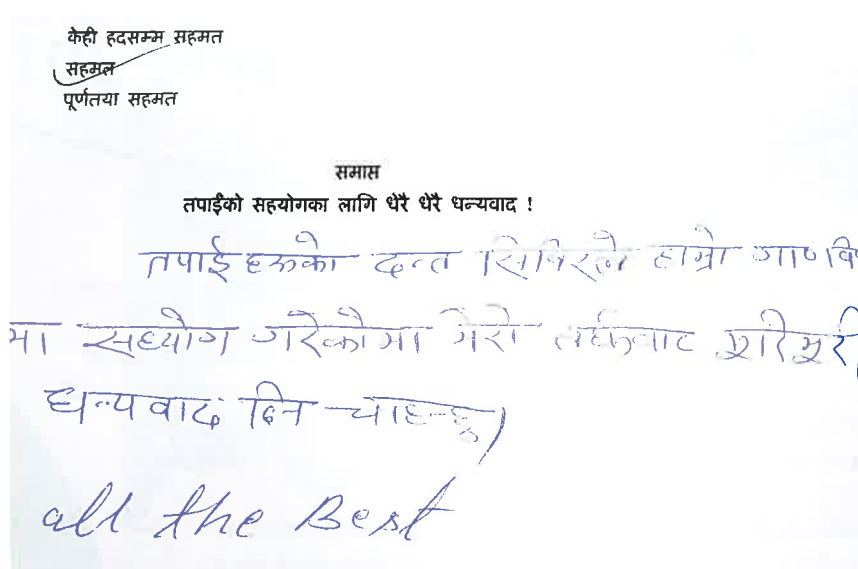 केही हदसम्म सहमत
सहमत
पूर्णतया सहमत
समाप्त
तपाईंको सहयोगका लागि धेरै धेरै धन्यवाद !
तपाई हरुको दन्त सिविरले हाम्रो गा०वि
मा सहयोग गरेकोमा मेरो तर्फबाट भुरिभुरी
धन्यवाद दिन चाहन्छु।
all the Best